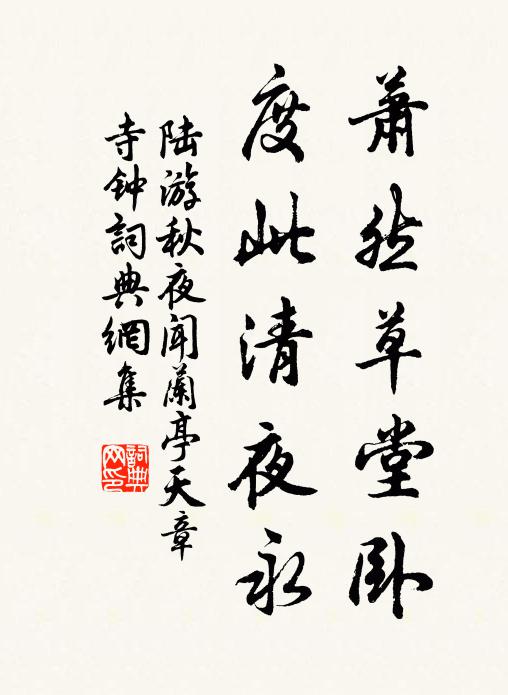 萧然草堂卧
度此清夜永
陆游秋夜闻兰亭天章
寺钟词典網集
詞典网印